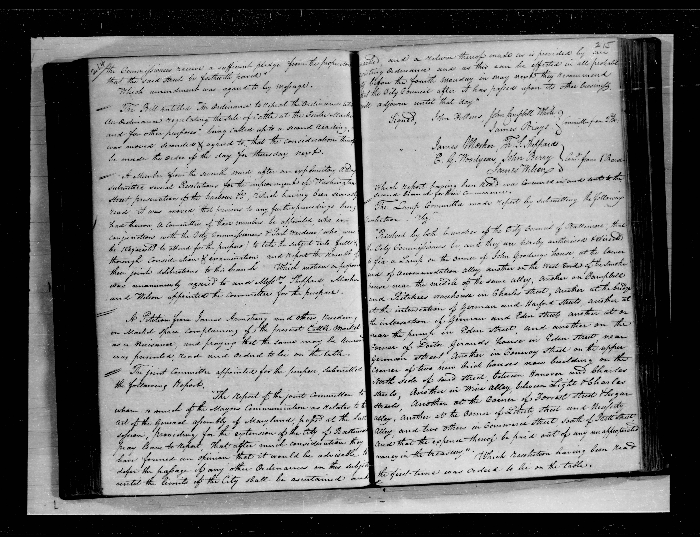 the Commissioners receive a sufficient pledge from the
that the said Street be forthwith paved"
Which amendment was agreed to by message.
The Bill entitled "An Ordinance to repeal the Ordinance
An Ordinance regulating the Sale of Cattle at the
and for other purposes" being called up to a second reading,
was moved seconded & agreed to, that the consideration
be made the order of the day for thursday next.
A Member from the Second
submitted Resolutions for the improvement of Washington
Street
read it was moved that previous to any further proceedings being
had thereon a Committee of three members be appointed who in
conjunction with the City Commissioners & Port Wardens who
be requested to attend for the purpose, to take the subject into full &
thorough Consideration & examination and report the result of
their joint deliberations to this branch. Which motion
was unanimously agreed to and Messrs. Stoffard, Mosher
and Wilson appointed the Committee for the purpose.
A Petition from James Armstrong and others residing
on Market Space complaining of the present Cattle Market
as a nuisance, and praying that the same may be
was presented read and ordered to lie on the table.
The joint Committee appointed for the purpose submitted
the following Report.
"The Report of the joint Committee to
whom so much of the Mayors Communication as relates to the
act of the General Assembly of Maryland, passed at the last
session, providing for the extension of the City of Baltimore
beg leave to report that after much consideration they
have formed an opinion that it would be advisable to
defer the passage of any other Ordinances on this subject
until the limits of the City shall be ascertained and
215
and a return thereof made as is provided by
existing Ordinance and as this can be effected in all probability
upon the fourth Monday in may next they recommend
the City Council after it has passed upon the
adjourn until that day"
Signed, John Hillens, John Campbell White
James Boyd
James Mosher
E. G. Woodyear John Berry
James Wilson
Which report having been read was concurred in and sent to the
second branch for their concurrence.
The Lamp Committee made report by submitting the following
resolution. Viz
"Resolved by both branches of the City Council of Baltimore, that
the City Commissioners be and they are hereby authorised & directed
to fix a Lamp on the corner of John Goodings house at the corner
of accommodation alley another on the West End of the
near the middle of the same alley, another on Campbell
and Ritchies warehouse in Charles street, another at the bridge
at the intersection of German and Harford streets another at
the intersection of German and Eden street another at or
near the pump in Eden street, and another on the
corner of Tailor Gerards house in Eden street near
German street. Another in Conway street on the upper
corner of two new brick houses now building on the
North side of said street, between Hanover and Charles
streets, Another in Wine alley between Light & Charles
streets, Another at the Corner of Forrest street & Sugar
alley, Another at the Corner of Liberty street and
alley and two others in Commerce street South of Pratt street
And that the expense thereof be paid out of any unappropriated
money in the treasury". Which resolution having been read
the first time was ordered to lie on the table.